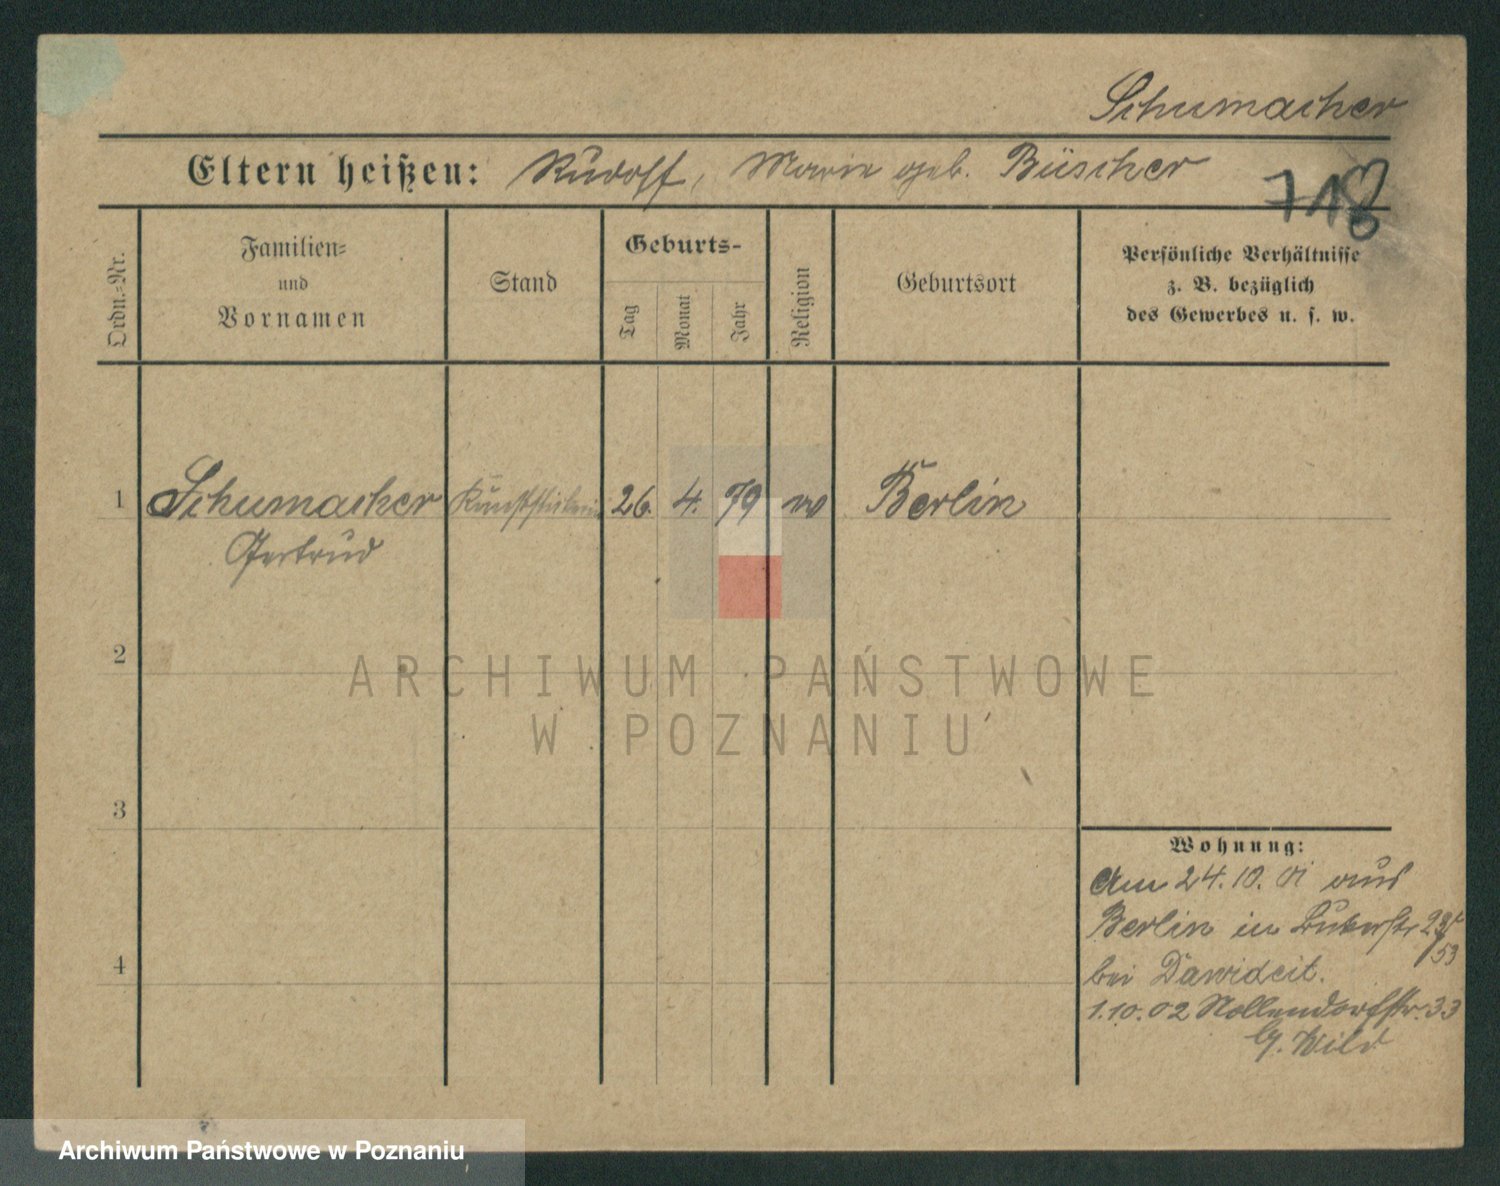 Schumacher
Eltern heißen: Rudolf, Marie geb. Büscher
718
Ordn.=Nr.
Familien=
und
Vornamen
Stand
Geburts-
Tag
Monat
Jahr
Religion
Geburtsort
Persönliche Verhältnisse
z. B. bezüglich
des Gewerbes u. s. w.
1 Schumacher 26. 4. 79 Berlin
Gertrud
2
ARCHIWUM PAŃSTWOWE
W POZNANIU
3
Wohnung:
Am 24.10.01 aus
Berlin in
4
bei Dawideit.
1.10.02 Nollendorfstr. 33
b/. Wild
Archiwum Państwowe w Poznaniu